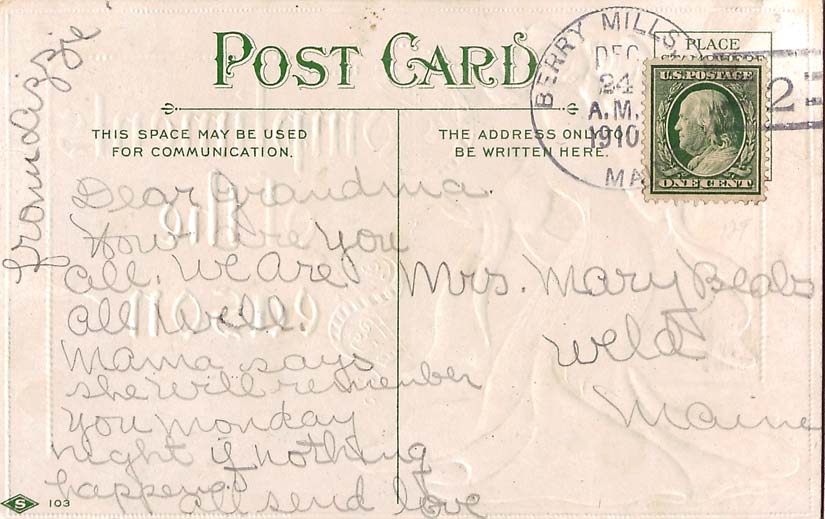 from Lizzie
POST CARD
THIS SPACE MAY BE USED
FOR COMMUNICATION.
THE ADDRESS ONLY TO
BE WRITTEN HERE.
PLACE
STAMP HERE
BERRY MILLS,
DEC
24
A.M.
1910
MA
2
U.S. POSTAGE
ONE CENT
179
Dear Grandma.
How are you
all. We are
all well.
Mama says
she will remember
you monday
night if nothing
happens.
all send love
Mrs. Mary Beals
Weld
Maine
S 103